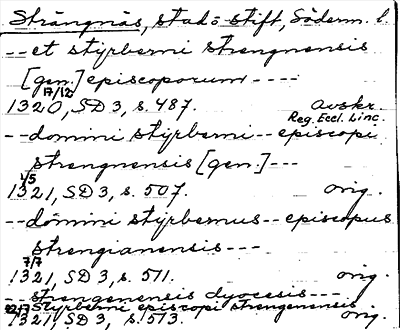 Strängnäs, stad o stift, Söderm. l
-- et styrberni strengnensis
[gen.] episcoporum ----
17/12
1320, SD 3, s. 487. avskr.
Reg. Eccl. Linc.
-- domini styrberni -- episcopi
strengnensis [gen.] ---
1/5
1321, SD 3, s. 507. orig.
-- domini styrbernus -- episcopus
strengianensis ---
7/7
1321, SD 3, s. 511. orig.
-- strengenensis dyocesis ---
-- Styrberni episcopi strengenensis
1321, SD 3, s. 513. orig.